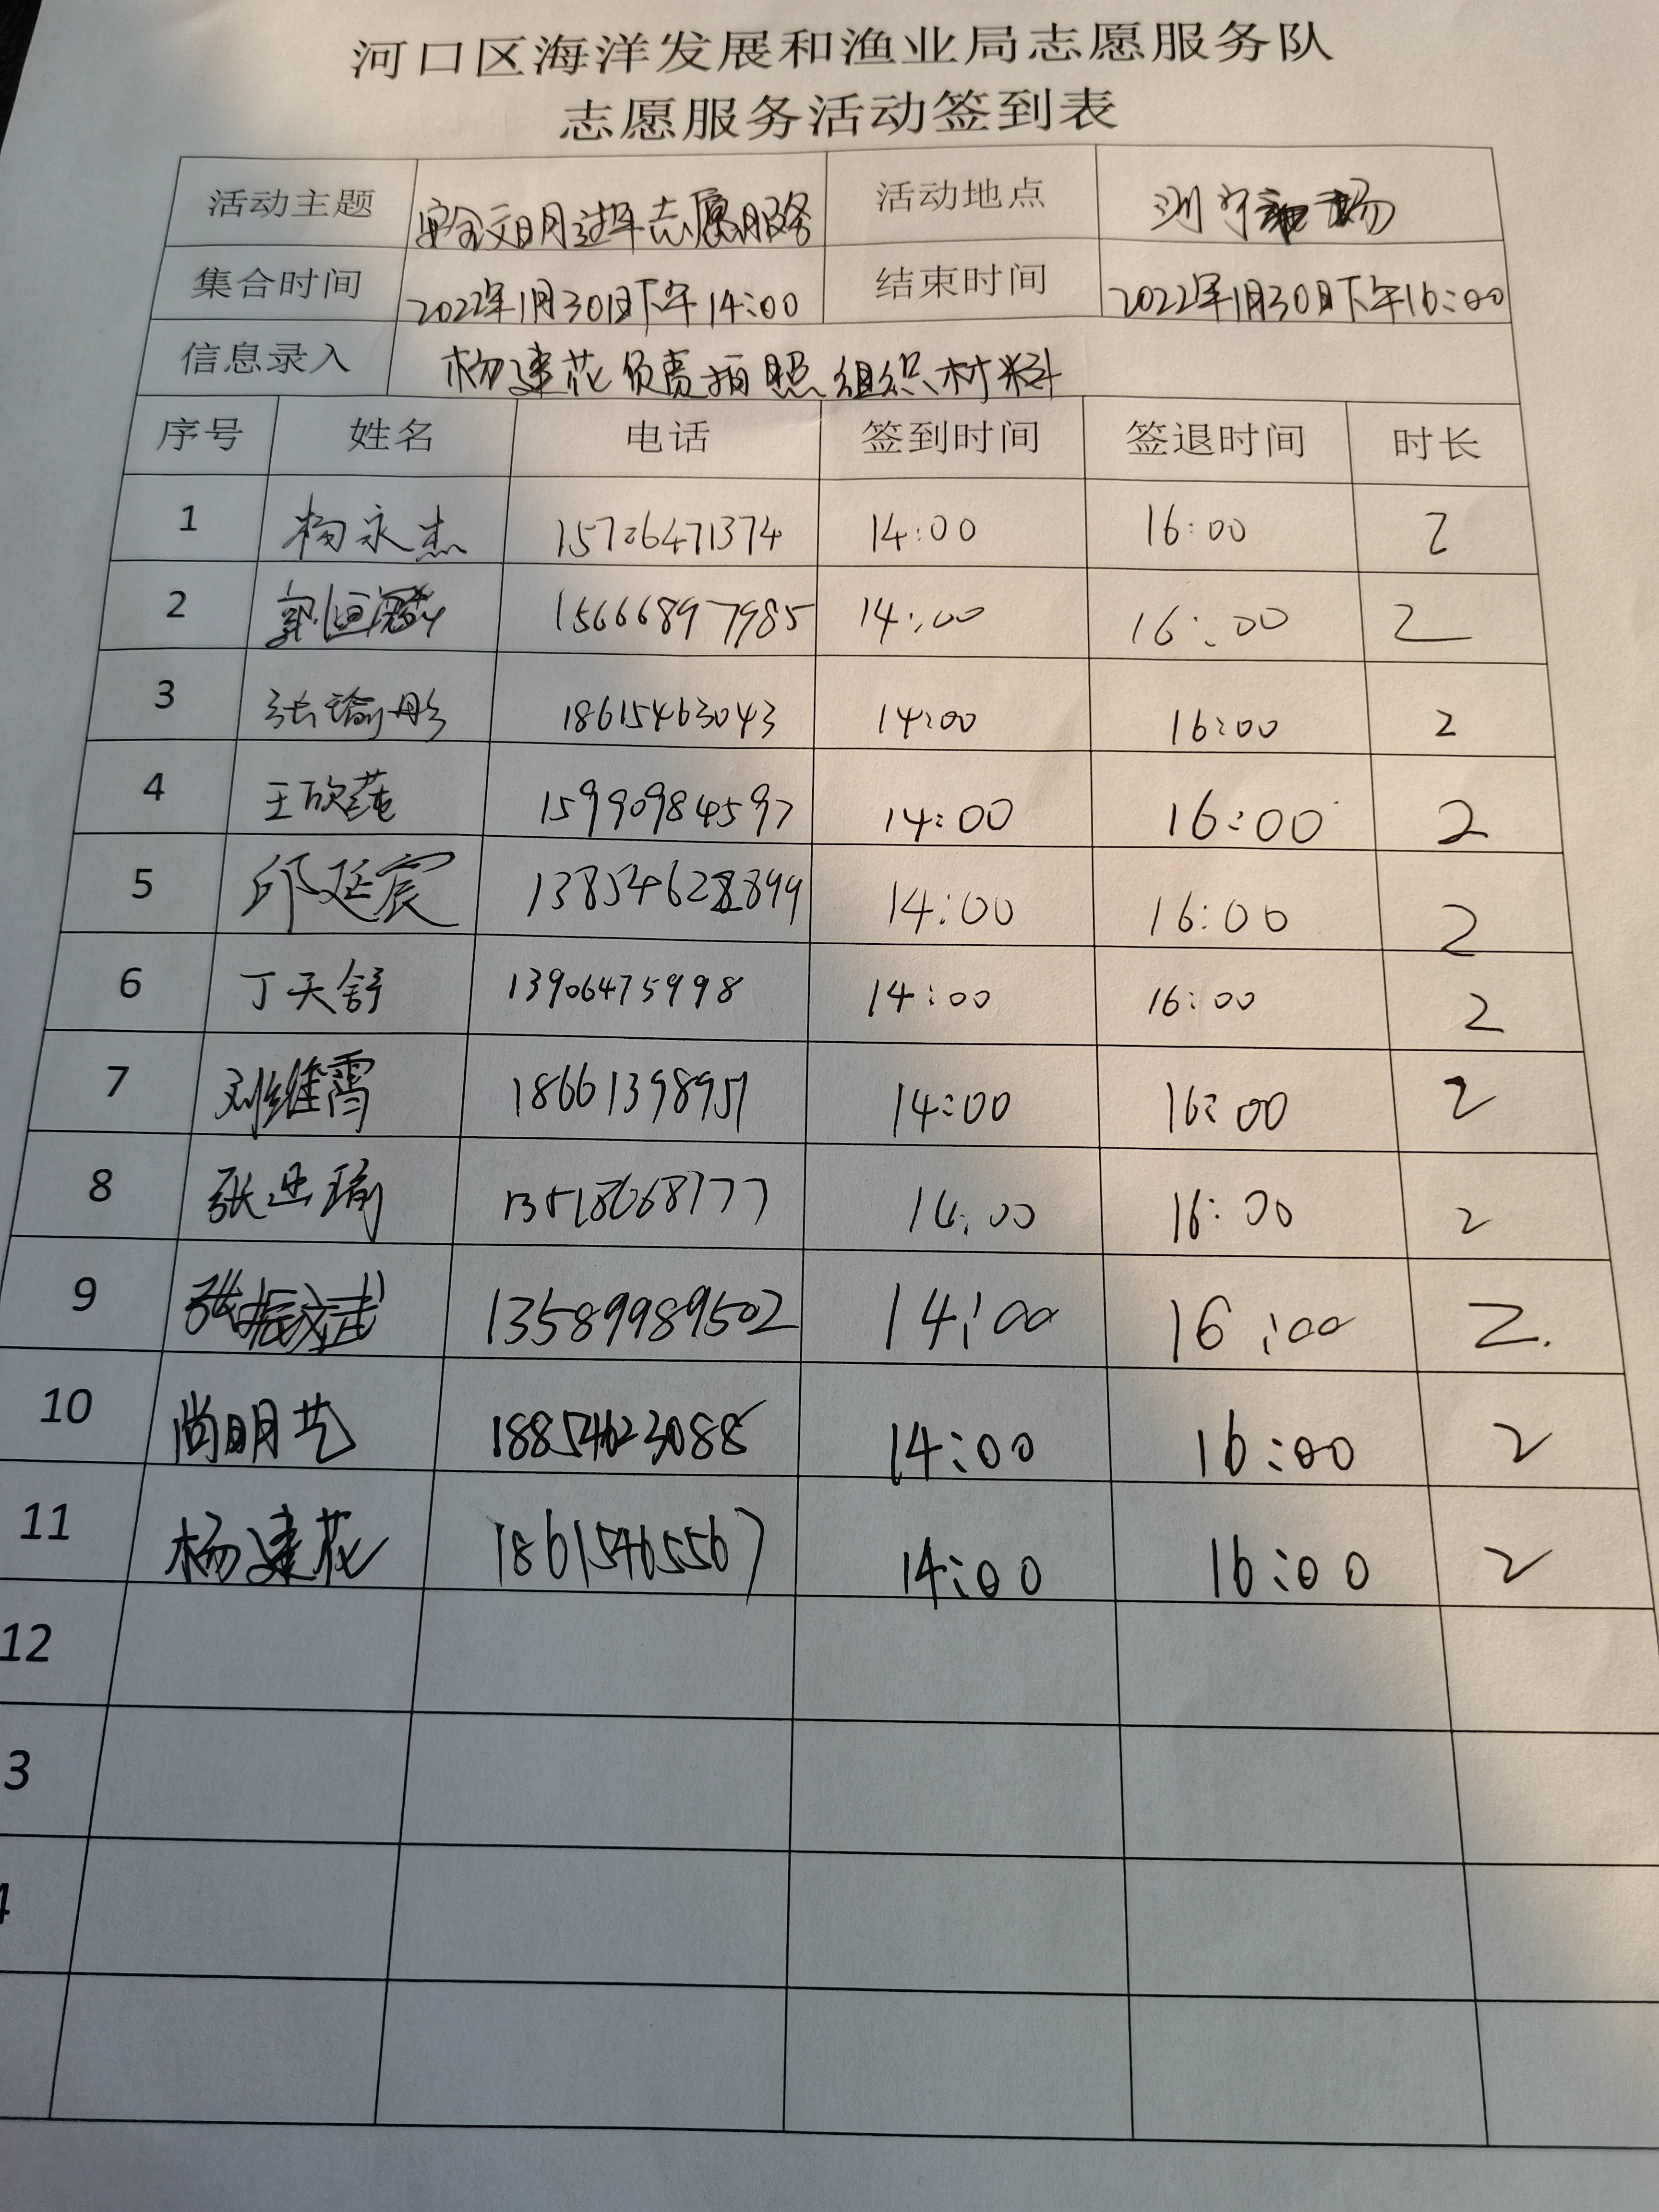 河口区海洋发展和渔业局志愿服务队
志愿服务活动签到表
活动主题 安全文明过年志愿服务 活动地点
集合时间 2022年1月30日下午14:00 结束时间 2022年1月30日下午16:00
信息录入 杨建花负责拍照组织材料
序号 姓名 电话 签到时间 签退时间 时长
1 杨永杰 15726471374 14:00 16:00 2
2 15666897985 14:00 16:00 2
3 张瑜彤 18615463043 14:00 16:00 2
4 王欣莼 15990984597 14:00 16:00 2
5 邱延宸 13854628899 14:00 16:00 2
6 丁天舒 13906475998 14:00 16:00 2
7 刘维霄 18661398951 14:00 16:00 2
8 14:00 16:00 2
9 13589989502 14:00 16:00 2.
10 尚明艺 18854623088 14:00 16:00 2
11 杨建花 18615465567 14:00 16:00 2
12
3
4